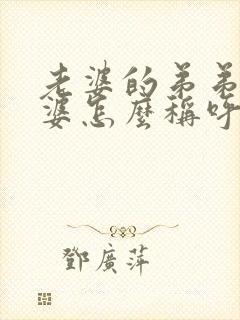 老婆的弟弟
婆怎麼稱呼
鄧廣萍